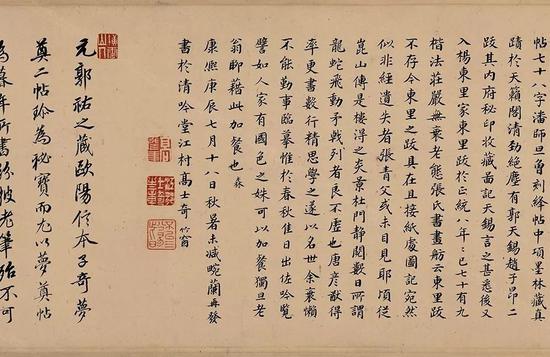 帖七十八字潘師旦刻絳帖中項墨林藏真
蹟於天籟閣清勁絕塵有郭天錫趙子昂二
跋其内府秘印收藏啚記天錫言之甚悉後又
入楊東里家東里跋於正統八年已七十有九
楷法莊嚴無衰老態張氏書畫舫云東里跋
不存今東里之跋具在且接紙處圖記宛然
似非經遺失者張青父或未目見耶頃從
崑山傳是樓淂之炎景杜門靜閱數日所謂
龍蛇飛動矛戟列者良不虛也唐彥猷得
率更書數行精思學之遂以名世余衰懶
不能勤事臨摹惟於春秋佳日出佐吟覽
譬如人家有國色之姝可以加餐獨旦老
翁聊藉此加餐也
康熙庚辰七月十八日秋暑未減畹蘭再發
書於清吟堂江村高士奇 竹窗
元郭祐之藏歐陽信本子奇夢
奠二帖珍為秘寶而尤以夢奠帖
為暮年所書紛披老筆殆不可